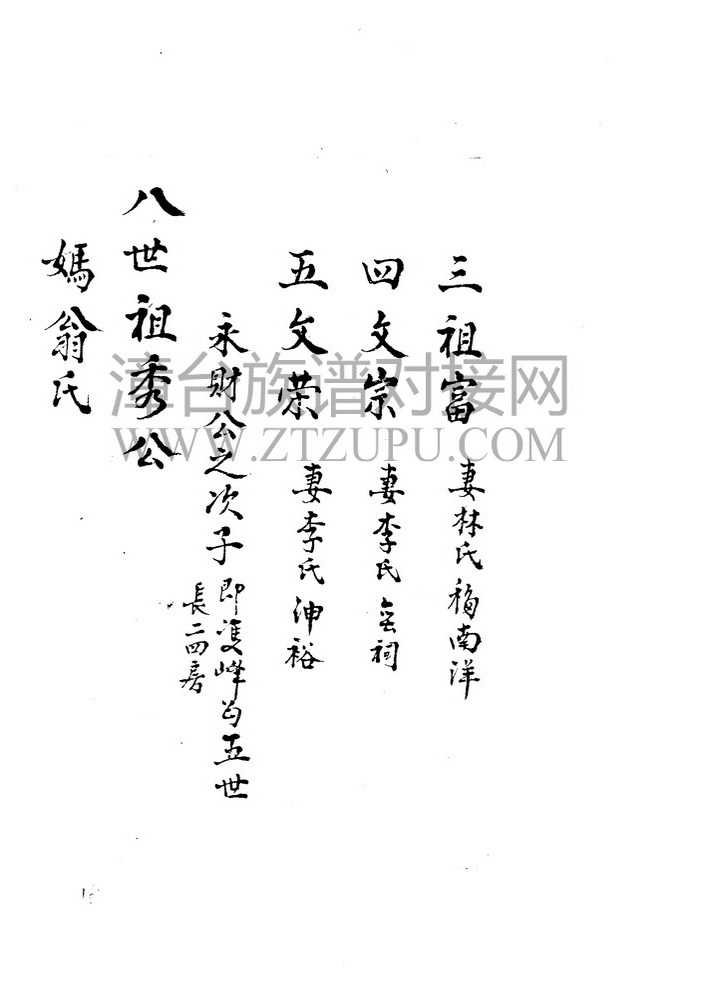 三祖富 妻林氏 移南洋
四文崇 妻李氏 祠
五文荣 妻李氏 沖裕
永財公之次子 即雙峰公五世
長二四房
八世祖秀公
媽翁氏
漳台族谱对接网
WWW.ZTZUPU.COM